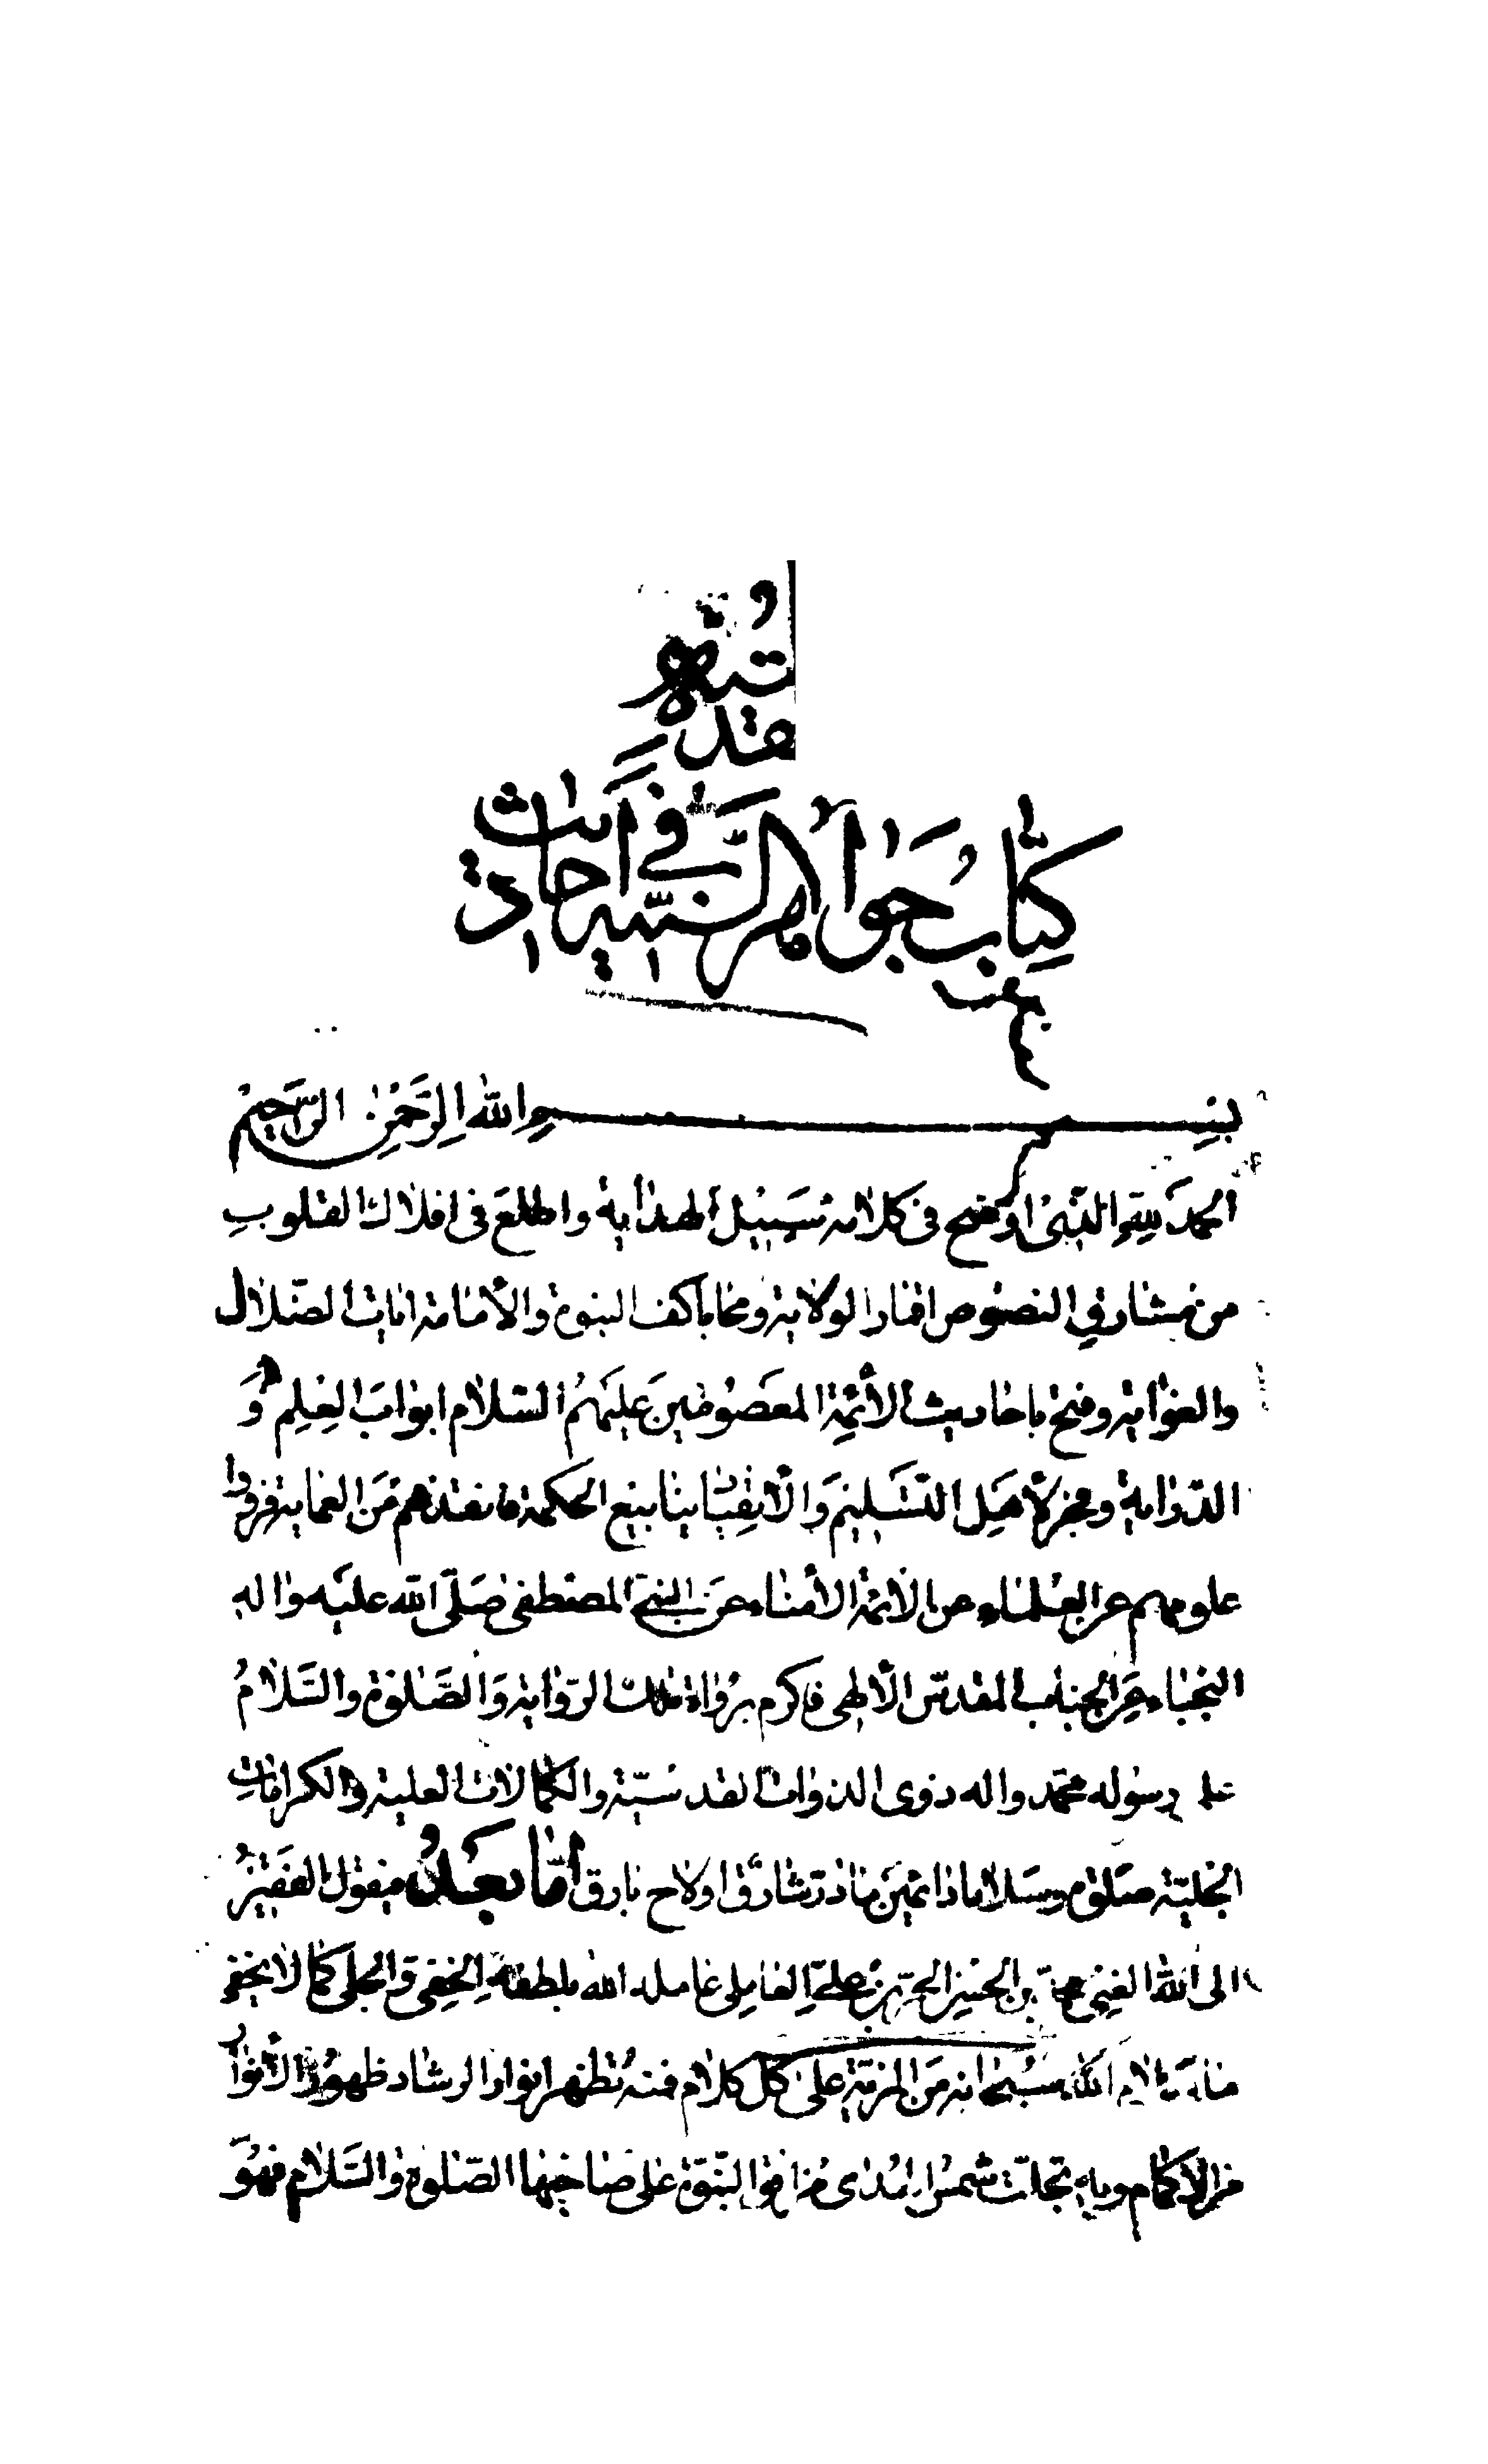 كتاب جواهر السنية في احاديث
القدسية
بسم الله الرحمن الرحيم
الحمد لله الذى اوضح فى كلامه سبيل الهداية واطلع فى افلاك القلوب
من مشارق النصوص اقمار الولاية ومحا باكف النبوة والأمامة ايات الضلال
والغواية وفتح باحاديث الأئمة المعصومين عليهم السلام ابواب العلم و
الدراية وفجر لأهل التسليم والأتقياء ينابيع الحكمة فانقذهم من العماية فرووا
علومهم عن العلماء عن الأئمة الأمناء عن النبي المصطفى صلى الله عليه واله
النجباء عن الجناب المقدس الألهى فاكرم برواة تلك الرواية والصلوة والسلام
على رسوله محمد واله ذوى الذوات القدسية والكمالات العلية والكرامات
الجلية صلوة وسلاما دائمين ما ذر شارق اولاح بارق اما بعد فيقول الفقير
الى الله الغني محمد بن الحسن الحر العاملى عامله الله بلطفه الخفى والجلى كما لا يخفى
ما لكلام الله سبحانه من المزية على كل كلام فمنه تظهر انوار الرشاد ظهور الأنوار
من الأكمام وبه تجلت شمس الهدى من افق النبوة على صاحبها الصلوة والسلام فهو